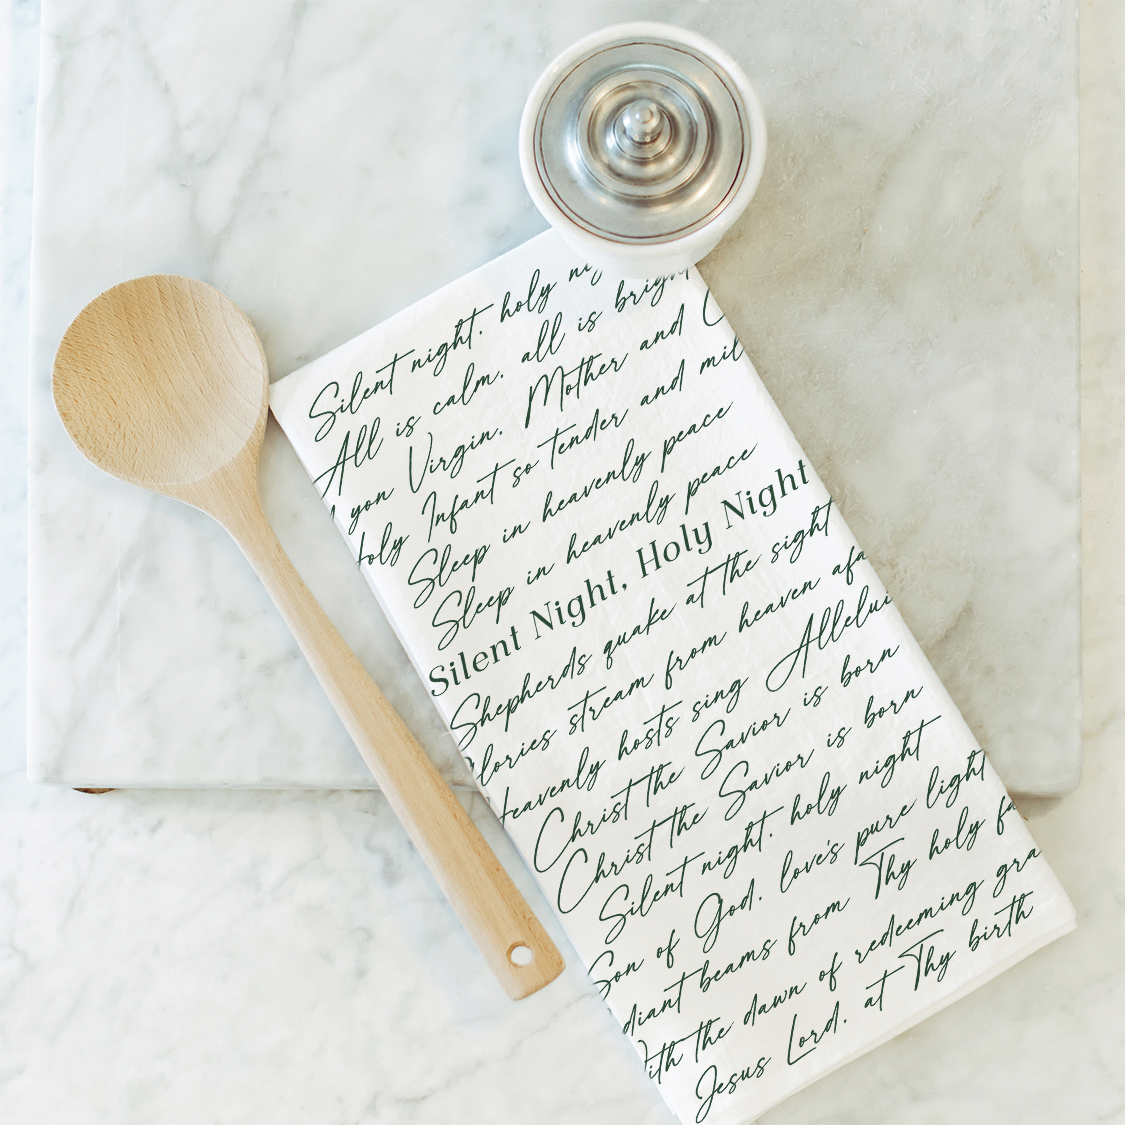 Silent night, holy
All is calm, all is bright
yon Virgin, Mother and
Infant so tender and
Sleep in heavenly peace
Sleep in heavenly peace
Silent Night, Holy Night
Shepherds quake at the sight
stream from heaven
hosts sing
Christ the Savior is born
Christ the Savior is born
Silent night, holy night
Son of God, love's pure light
beams from Thy holy
the dawn of redeeming
Jesus Lord, at Thy birth